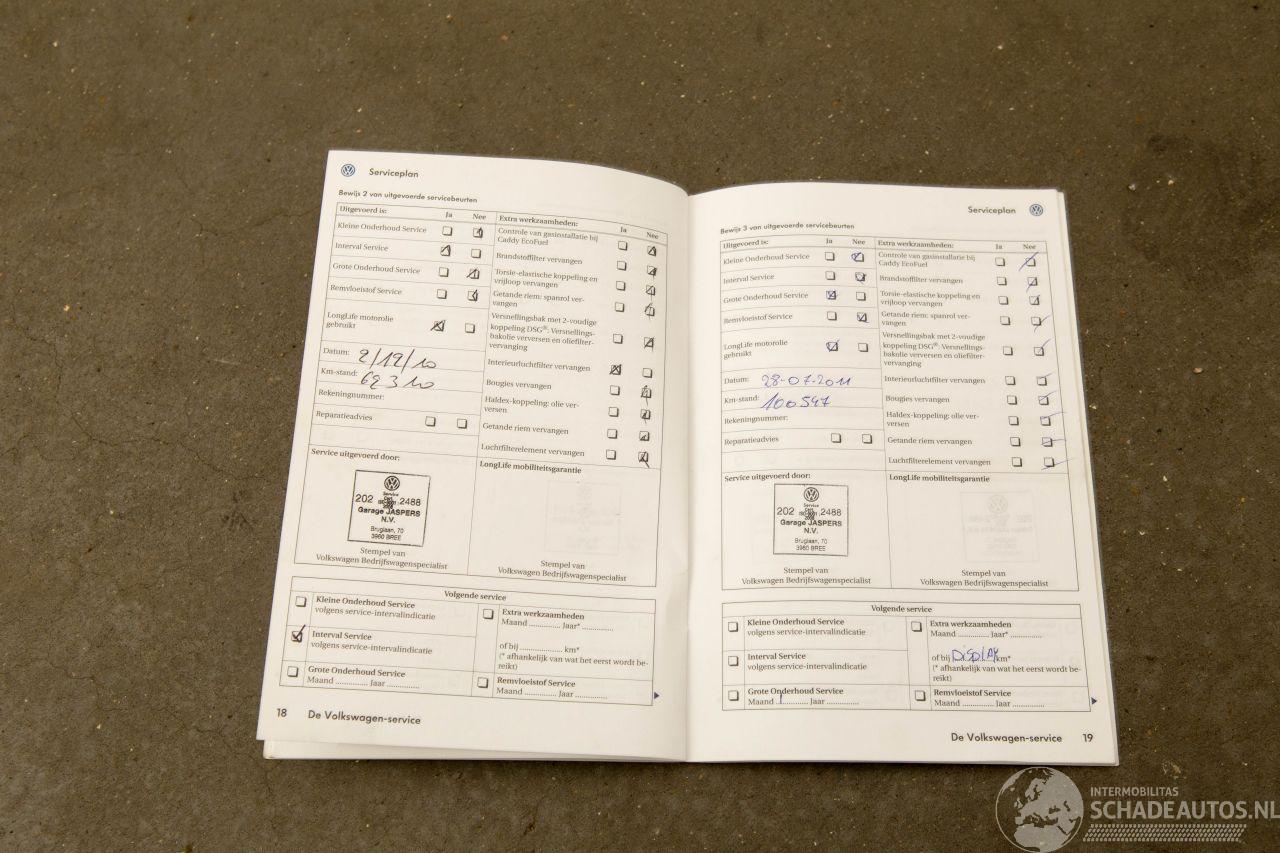 Serviceplan
Bewijs 2 van uitgevoerde servicebeurten
Uitgevoerd is: Ja Nee
Kleine Onderhoud Service
Interval Service
Grote Onderhoud Service
Remvloeistof Service
LongLife motorolie
gebruikt
Datum: 2/12/10
Km-stand: 69310
Rekeningnummer:
Reparatieadvies
Extra werkzaamheden: Ja Nee
Controle van gasinstallatie bij
Caddy EcoFuel
Brandstoffilter vervangen
Torsie-elastische koppeling en
vrijloop vervangen
Getande riem: spanrol ver-
vangen
Versnellingsbak met 2-voudige
koppeling DSG®: Versnellings-
bakolie verversen en oliefilter-
vervanging
Interieurluchtfilter vervangen
Bougies vervangen
Haldex-koppeling: olie ver-
versen
Getande riem vervangen
Luchtfilterelement vervangen
Service uitgevoerd door:
Service
202 2488
Garage JASPERS
N.V.
Bruglaan, 70
3960 BREE
Stempel van
Volkswagen Bedrijfswagenspecialist
LongLife mobiliteitsgarantie
Stempel van
Volkswagen Bedrijfswagenspecialist
Volgende service
Kleine Onderhoud Service
volgens service-intervalindicatie
Interval Service
volgens service-intervalindicatie
Grote Onderhoud Service
Maand .............. Jaar ..............
Extra werkzaamheden
Maand .............. Jaar* ..............
of bij .................. km*
(* afhankelijk van wat het eerst wordt be-
reikt)
Remvloeistof Service
Maand .............. Jaar ..............
18 De Volkswagen-service
Serviceplan
Bewijs 3 van uitgevoerde servicebeurten
Uitgevoerd is: Ja Nee
Kleine Onderhoud Service
Interval Service
Grote Onderhoud Service
Remvloeistof Service
LongLife motorolie
gebruikt
Datum: 28-07-2011
Km-stand: 100547
Rekeningnummer:
Reparatieadvies
Extra werkzaamheden: Ja Nee
Controle van gasinstallatie bij
Caddy EcoFuel
Brandstoffilter vervangen
Torsie-elastische koppeling en
vrijloop vervangen
Getande riem: spanrol ver-
vangen
Versnellingsbak met 2-voudige
koppeling DSG®: Versnellings-
bakolie verversen en oliefilter-
vervanging
Interieurluchtfilter vervangen
Bougies vervangen
Haldex-koppeling: olie ver-
versen
Getande riem vervangen
Luchtfilterelement vervangen
Service uitgevoerd door:
Service
202 2488
Garage JASPERS
N.V.
Bruglaan, 70
3960 BREE
Stempel van
Volkswagen Bedrijfswagenspecialist
LongLife mobiliteitsgarantie
Stempel van
Volkswagen Bedrijfswagenspecialist
Volgende service
Kleine Onderhoud Service
volgens service-intervalindicatie
Interval Service
volgens service-intervalindicatie
Grote Onderhoud Service
Maand .............. Jaar ..............
Extra werkzaamheden
Maand .............. Jaar* ..............
of bij DISPLAY km*
(* afhankelijk van wat het eerst wordt be-
reikt)
Remvloeistof Service
Maand .............. Jaar ..............
De Volkswagen-service 19
INTERMOBILITAS
SCHADEAUTOS.NL